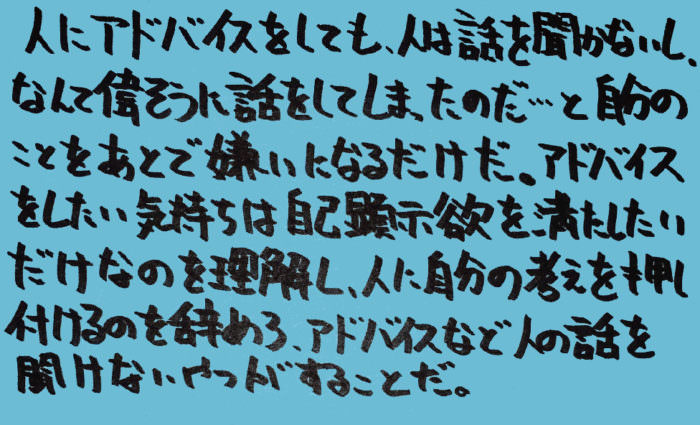 人にアドバイスをしても、人は話を聞かないし、
なんて偉そうに話をしてしまったのだ…と自分の
ことをあとで嫌いになるだけだ。アドバイス
をしたい気持ちは自己顕示欲を満たしたい
だけなのを理解し、人に自分の考えを押し
付けるのを辞めろ、アドバイスなど人の話を
聞けないやつがすることだ。